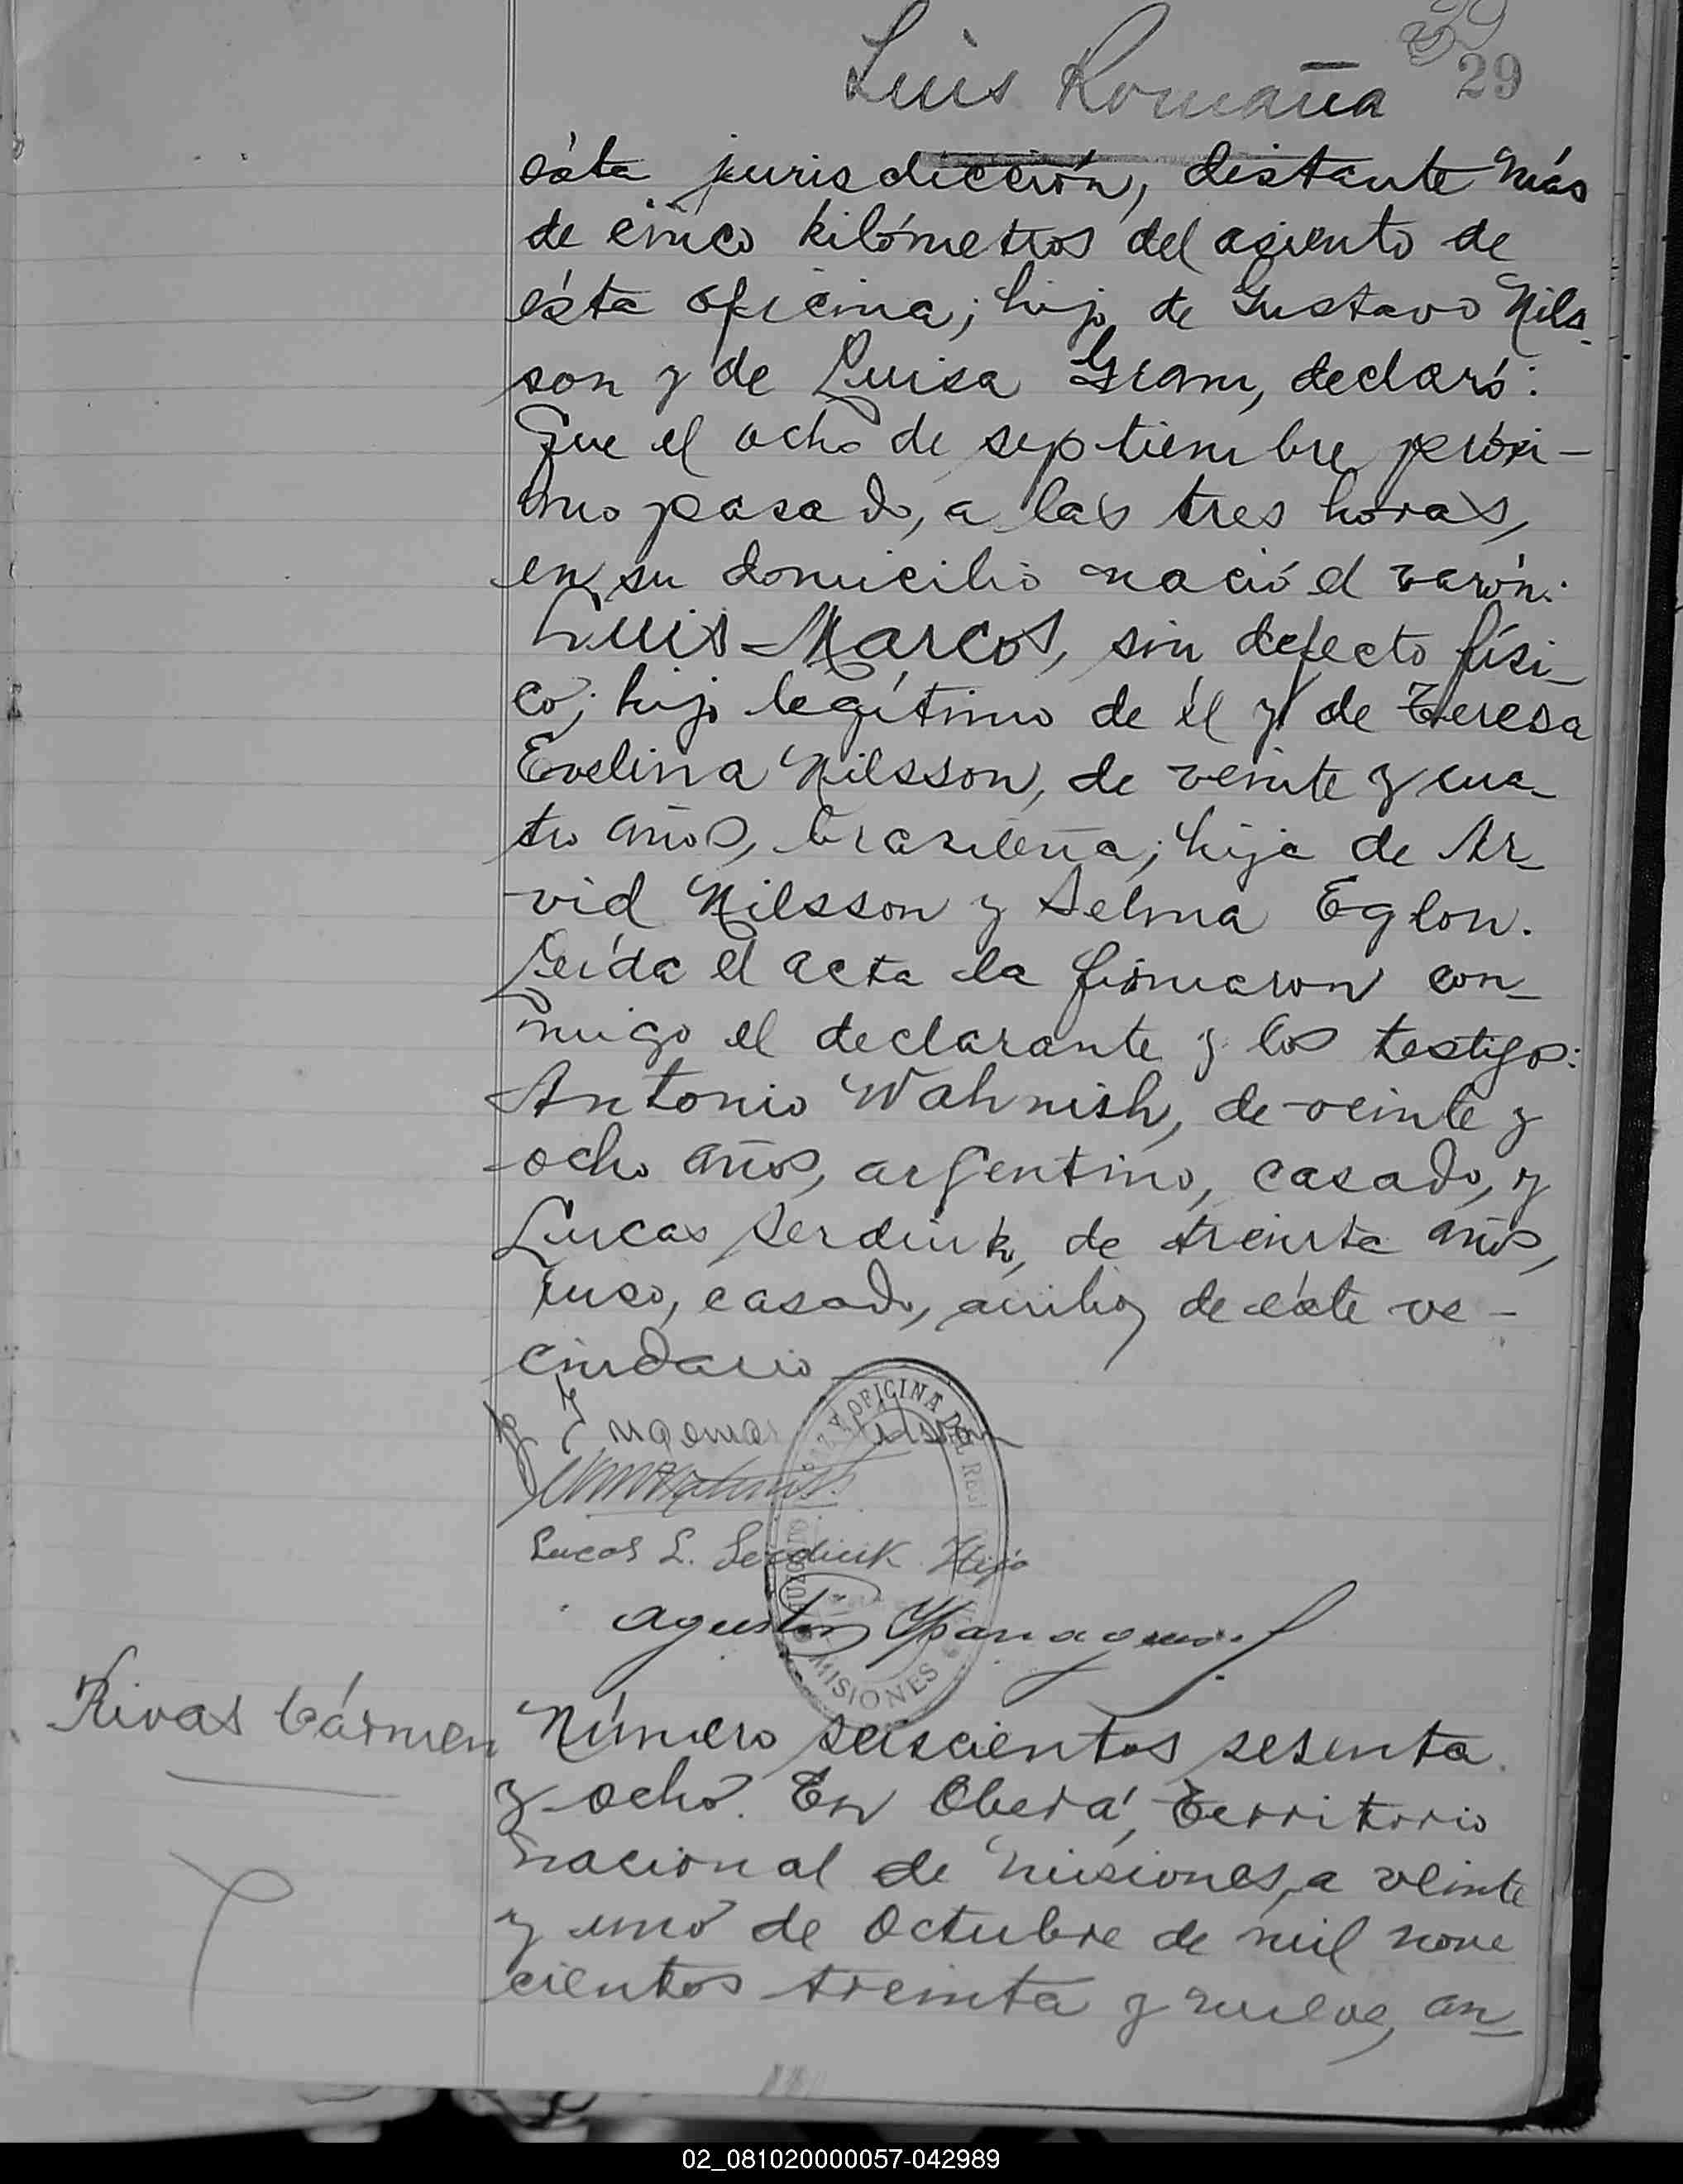 Luis Romaña
29
ésta jurisdicción, distante más
de cinco kilómetros del asiento de
ésta oficina; hijo de Gustavo Nils-
son y de Luisa Gram, declaró:
Que el ocho de septiembre próxi-
mo pasado, a las tres horas,
en su domicilio nació el varón:
Luis-Marcos, sin defecto físi-
co; hijo legítimo de él y de Teresa
Evelina Nilsson, de veinte y cua-
tro años, brasileña; hija de Ar-
vid Nilsson y Selma Eglon.
Leída el acta la firmaron con-
migo el declarante y los testigos:
Antonio Wahnish, de veinte y
ocho años, argentino, casado, y
Lucas Serdiuk, de treinta años,
ruso, casado, ambos de éste ve-
cindario
OFICINA DEL
Lucas L. Serdiuk Hijo
Agustín
MISIONES
Rivas Cármen
Número seiscientos sesenta
y ocho. En Oberá, Territorio
nacional de Misiones, a veinte
y uno de Octubre de mil nove
cientos treinta y nueve, an-
02_081020000057-042989